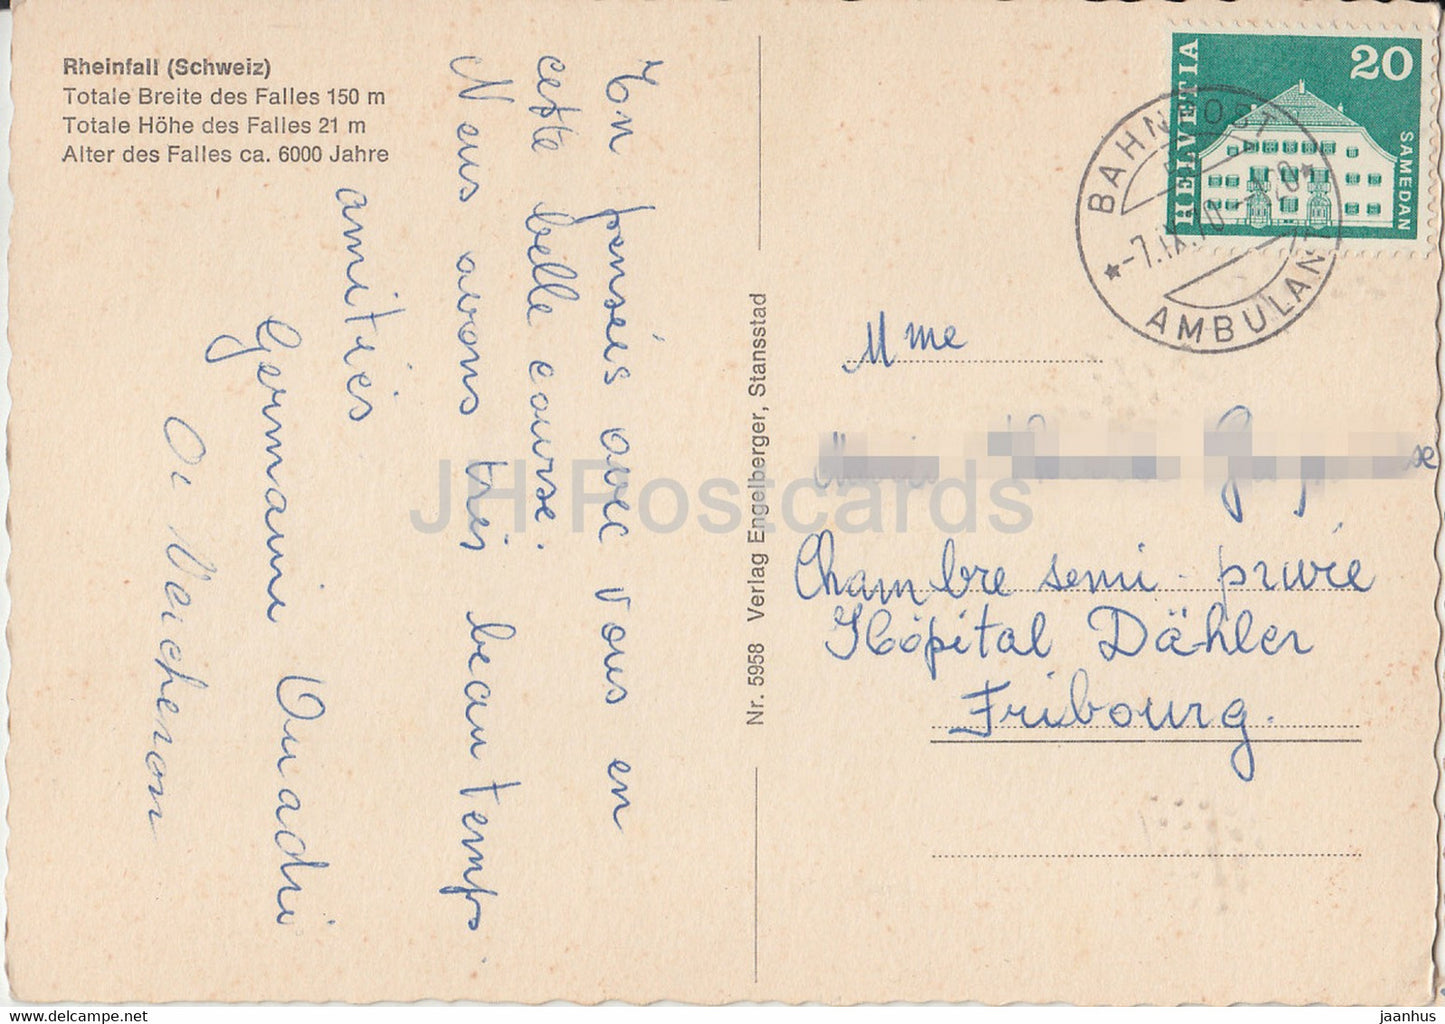 Rheinfall (Schweiz)
Totale Breite des Falles 150 m
Totale Höhe des Falles 21 m
Alter des Falles ca. 6000 Jahre
En pensées avec vous en
cette belle course.
Nous avons très beau temps
amitiés
Germaine
Nr. 5958 Verlag Engelberger, Stansstad
HELVETIA
20
SAMEDAN
BAHNPOST
AMBULANT
-7.IX.70
Mme
Chambre semi-privée
Hôpital Dähler
Fribourg.
JH Postcards
jaanhus @ delcampe.net